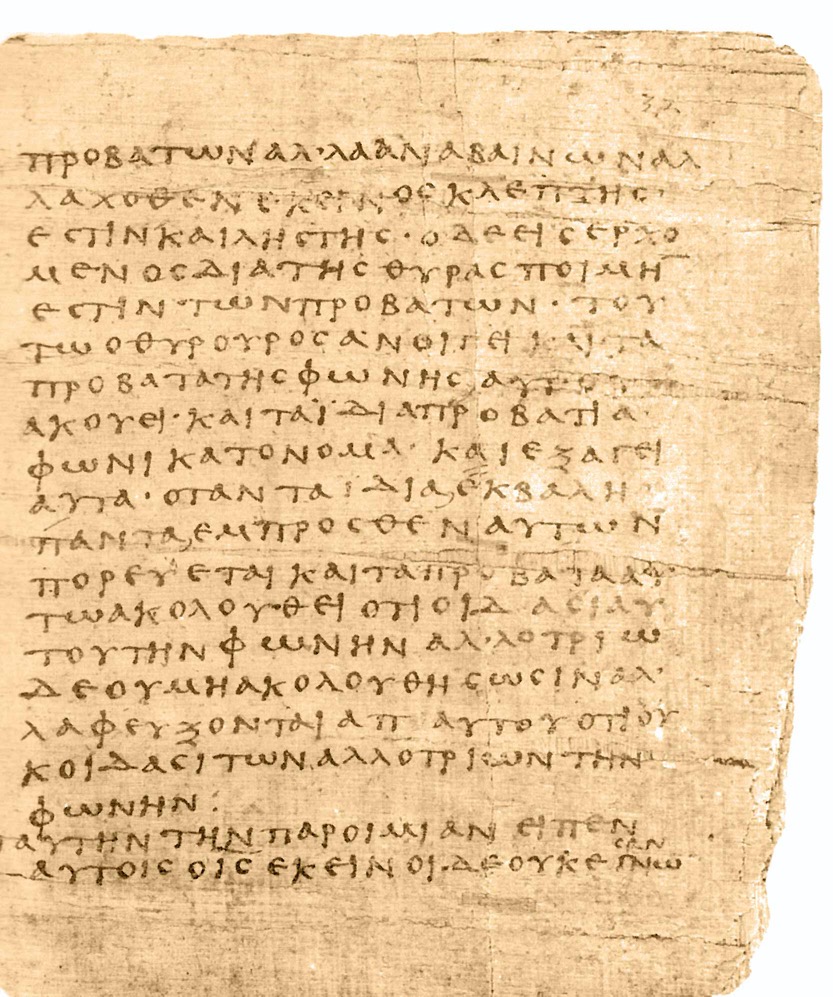 ⲗⲃ
προβατωναλ·λααναβαινωναλ
λαχοθενεκεινοςκλεπτης·
εστινκαιληστης·οδεεισερχο
μενοςδιατηςθυραςποιμη̅
εστιν·τωνπροβατων·του
τωοθυρουροςανοιγεικαιτα
προβατατηςφωνηςαυτου
ακουει·καιταϊδιαπροβατια·
φωνικατονομα·καιεξαγει
αυτα·οταντα ϊδιαεκβαλη·
πανταεμπροσθεναυτων
πορευεταικαιταπροβατααυ
τωακολου·θειοτιοιδασιαυ
τουτηνφωνηναλ·λοτριω
δεουμηακολουθησωσιναλ·
λαφευξονταιαπαυτουοτιου
κοιδασιτωναλλοτριωντην
φωνην:
ταυτηντηνπαροιμιανειπεν
αυτοιςοιςεκεινοι·δεουκεγνω
σαν